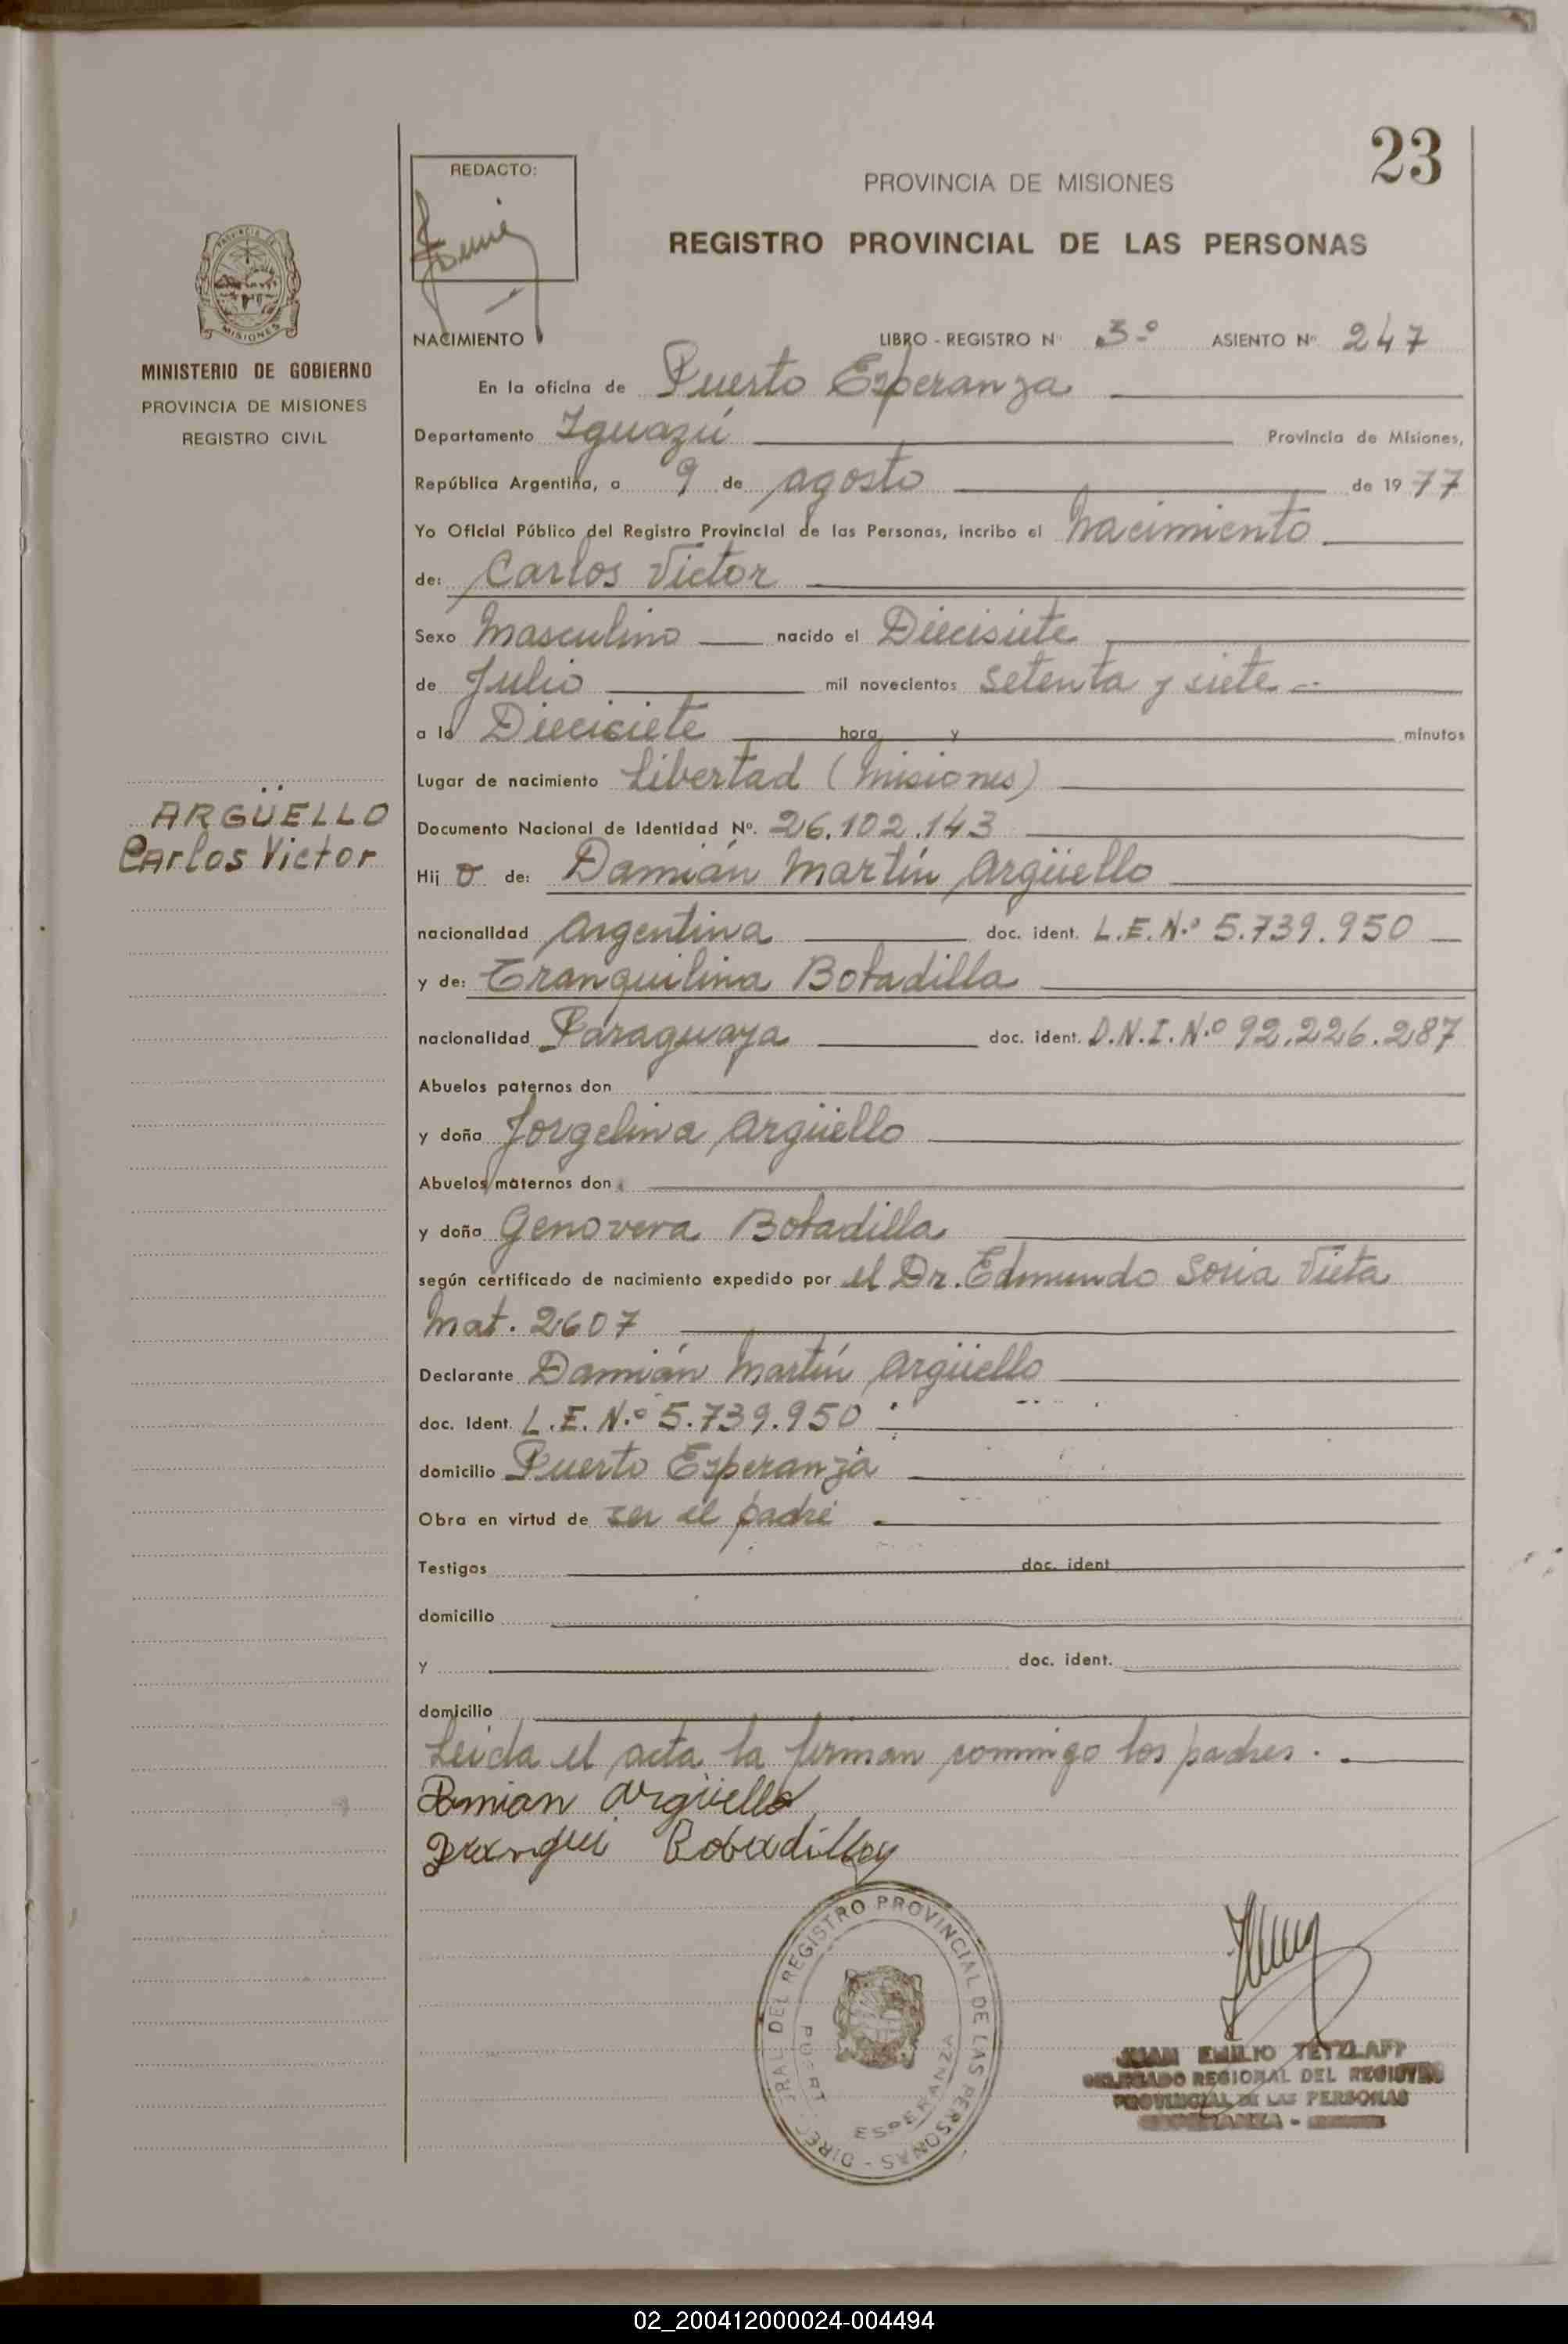 23
REDACTO:
PROVINCIA DE MISIONES
REGISTRO PROVINCIAL DE LAS PERSONAS
PROVINCIA DE
MISIONES
MINISTERIO DE GOBIERNO
PROVINCIA DE MISIONES
REGISTRO CIVIL
NACIMIENTO LIBRO - REGISTRO Nº 3º ASIENTO Nº 247
En la oficina de Puerto Esperanza
Departamento Iguazú Provincia de Misiones,
República Argentina, a 9 de agosto de 1977
Yo Oficial Público del Registro Provincial de las Personas, incribo el Nacimiento
de: Carlos Victor
Sexo Masculino nacido el Diecisiete
de Julio mil novecientos setenta y siete
a la Diecisiete hora y minutos
Lugar de nacimiento Libertad (Misiones)
ARGÜELLO
Carlos Victor
Documento Nacional de Identidad Nº. 26.102.143
Hij o de: Damián Martín Argüello
nacionalidad Argentina doc. ident. L.E.N.º 5.739.950
y de: Tranquilina Bobadilla
nacionalidad Paraguaya doc. ident. D.N.I.N.º 92.226.287
Abuelos paternos don
y doña Jorgelina Argüello
Abuelos maternos don
y doña Genovera Bobadilla
según certificado de nacimiento expedido por el Dr. Edmundo Soria Vieta
Mat. 2607
Declarante Damián Martín Argüello
doc. Ident. L.E.N.º 5.739.950
domicilio Puerto Esperanza
Obra en virtud de ser el padre
Testigos doc. ident
domicilio
y doc. ident.
domicilio
Leida el acta la firman conmigo los padres.
Damian Argüello
Tranqui Bobadilla
DIREC. GRAL. DEL REGISTRO PROVINCIAL DE LAS PERSONAS -
PUERTO ESPERANZA
JUAN EMILIO TETZLAFF
DELEGADO REGIONAL DEL REGISTRO
PROVINCIAL DE LAS PERSONAS
ESPERANZA -
02_200412000024-004494